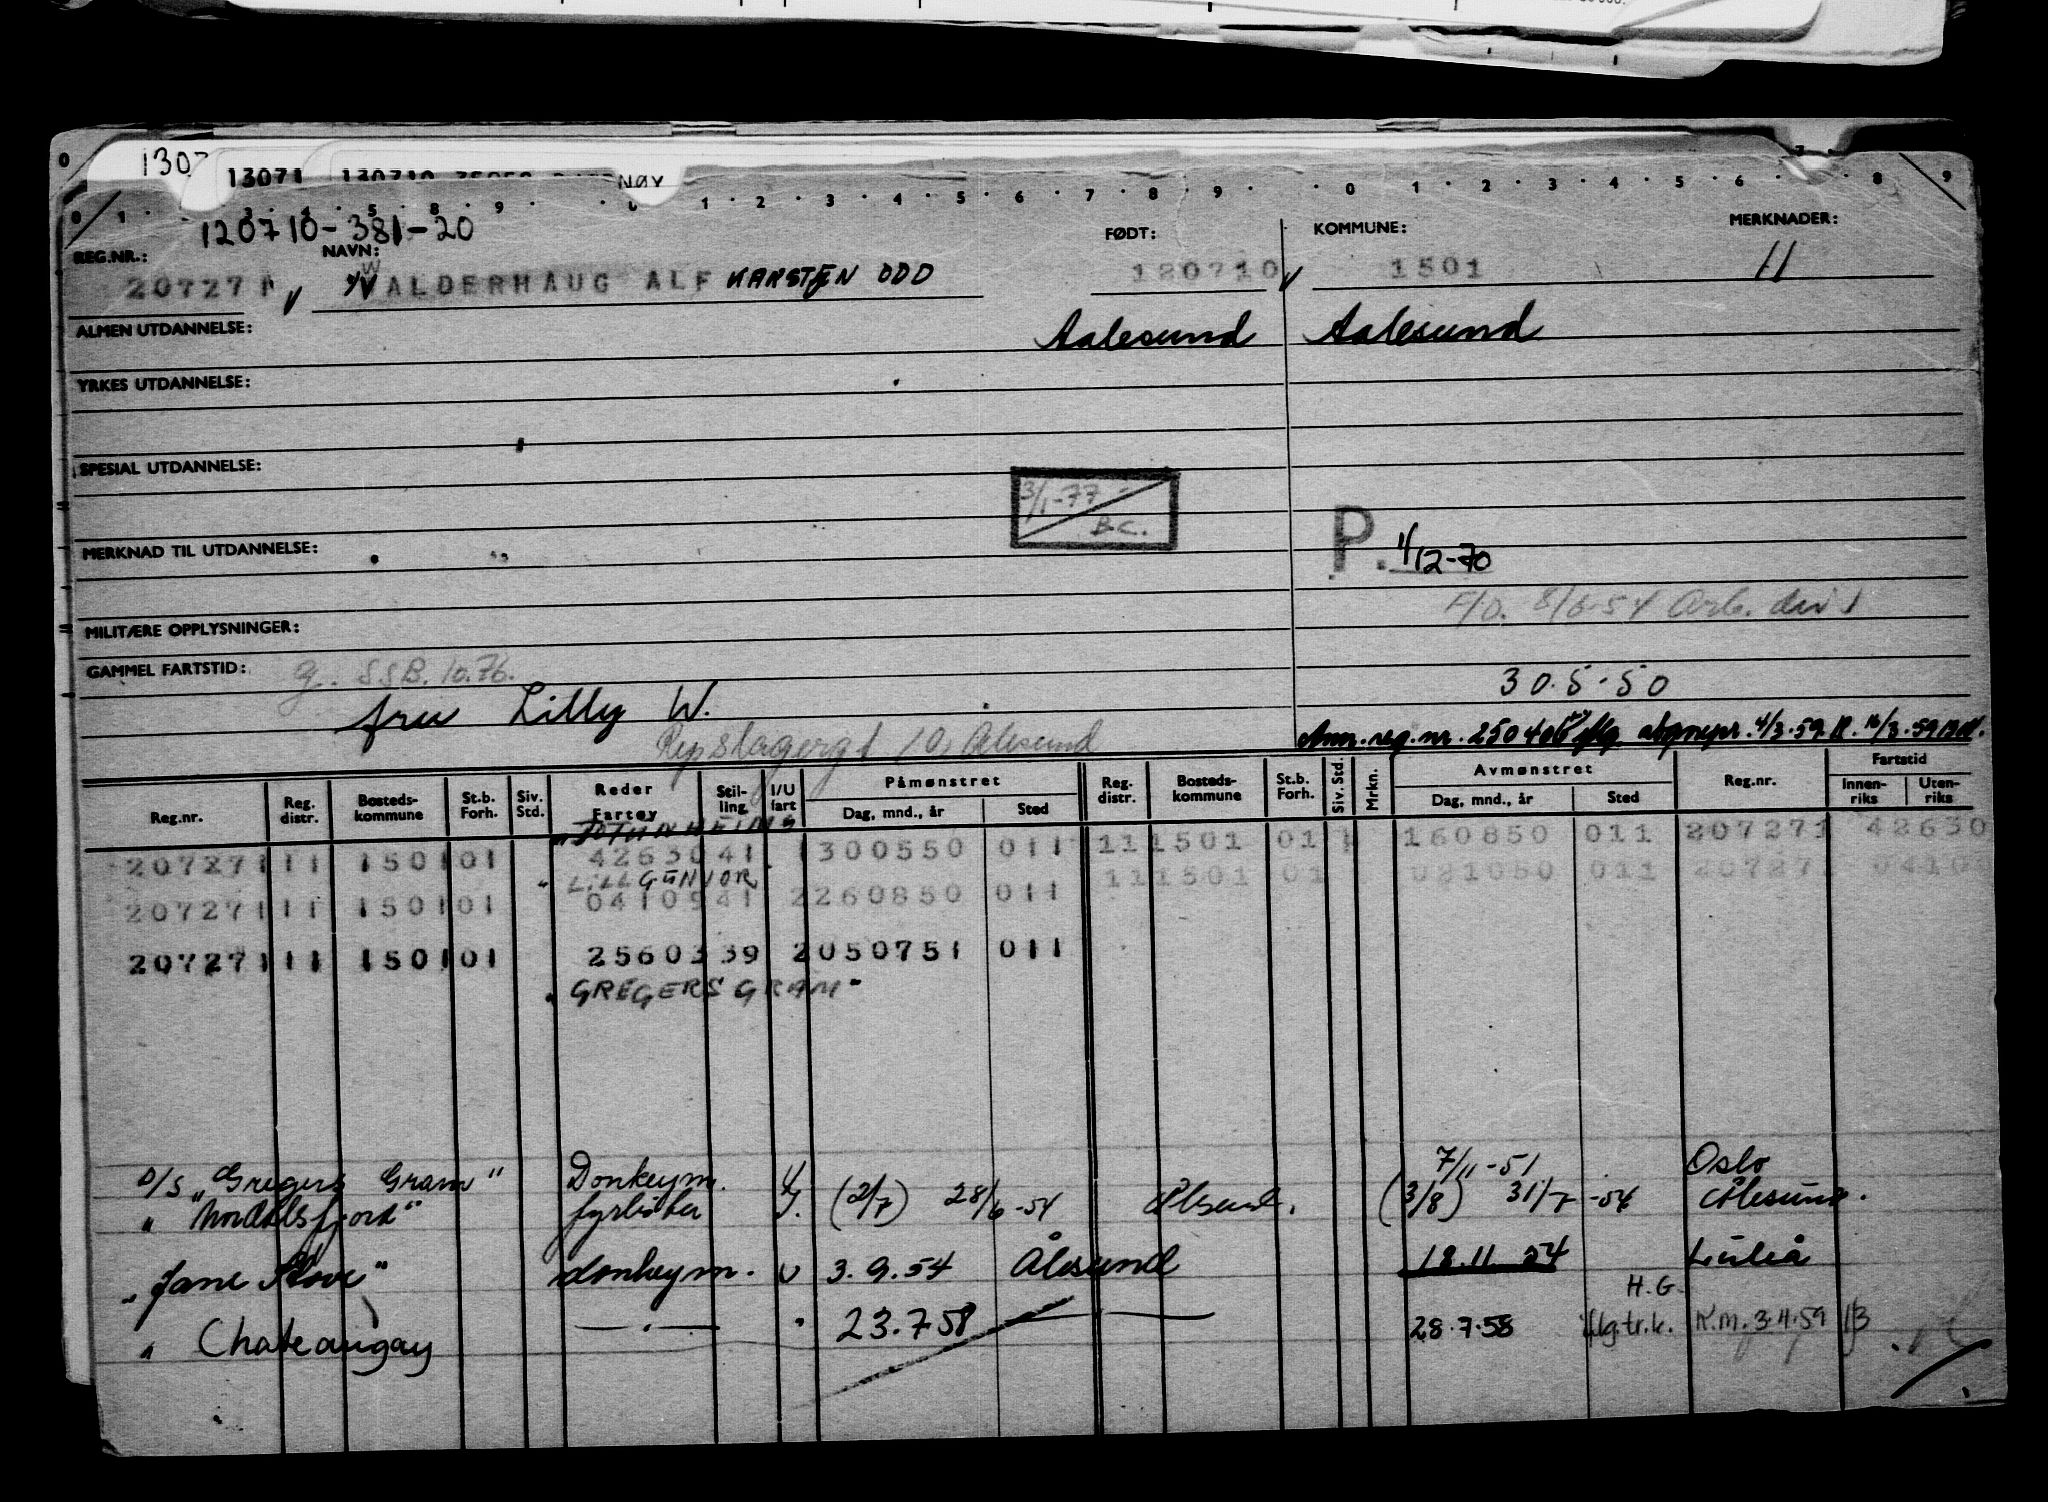 1307
13071 130710
0 1 8 9 1 2 3 4 5 6 7 8 9 0 1 2 3 4 5 6 8 9
120710-381-20
REG.NR.: NAVN: FØDT: KOMMUNE: MERKNADER:
207271 WALDERHAUG ALF KARSTEN ODD 120710 1501 11
ALMEN UTDANNELSE: Aalesund Aalesund
YRKES UTDANNELSE:
SPESIAL UTDANNELSE:
3/1-77
B.C.
MERKNAD TIL UTDANNELSE:
P. 1/12-70
F/O. 8/6-54 Arb. dir
MILITÆRE OPPLYSNINGER:
GAMMEL FARTSTID: g. SSB. 10.76. 30.5.50
fru Lilly W.
Repslagergt 10, Ålesund
Ann. reg. nr. 250406 4/3.59
Reg.nr. Reg. distr. Bosteds- kommune St.b. Forh. Siv. Std. Reder Fartøy Stil- ling I/U fart Påmønstret Dag, mnd., år Sted Reg. distr. Bosteds- kommune St.b. Forh. Siv. Std. Mrkn. Avmønstret Dag, mnd., år Sted Reg.nr. Fartstid Innen- riks Uten- riks
"JOTUNHEIMS
207271 11 1501 01 42630 41 1 300550 011 11 1501 01 1 160850 011 207271 42630
"LILLGUNVOR
207271 11 1501 01 04109 41 2 260850 011 11 1501 01 021050 011 207271
207271 11 1501 01 25603 39 2 050751 011
"GREGERS GRAM"
D/S "Gregers Gram" Donkeym. U 7/11-51 Oslo
" Nordalsfjord" fyrbøter I. (2/7) 28/6-54 Ålesund. (3/8) 31/7-54 Ålesund.
" Jane Stove" donkeym. U 3.9.54 Ålesund 18.11 54 Luleå
H.G.
" Chateaugay — " — " 23.7.58 28.7.58 iflg.tr.k. K.m. 3.11.59